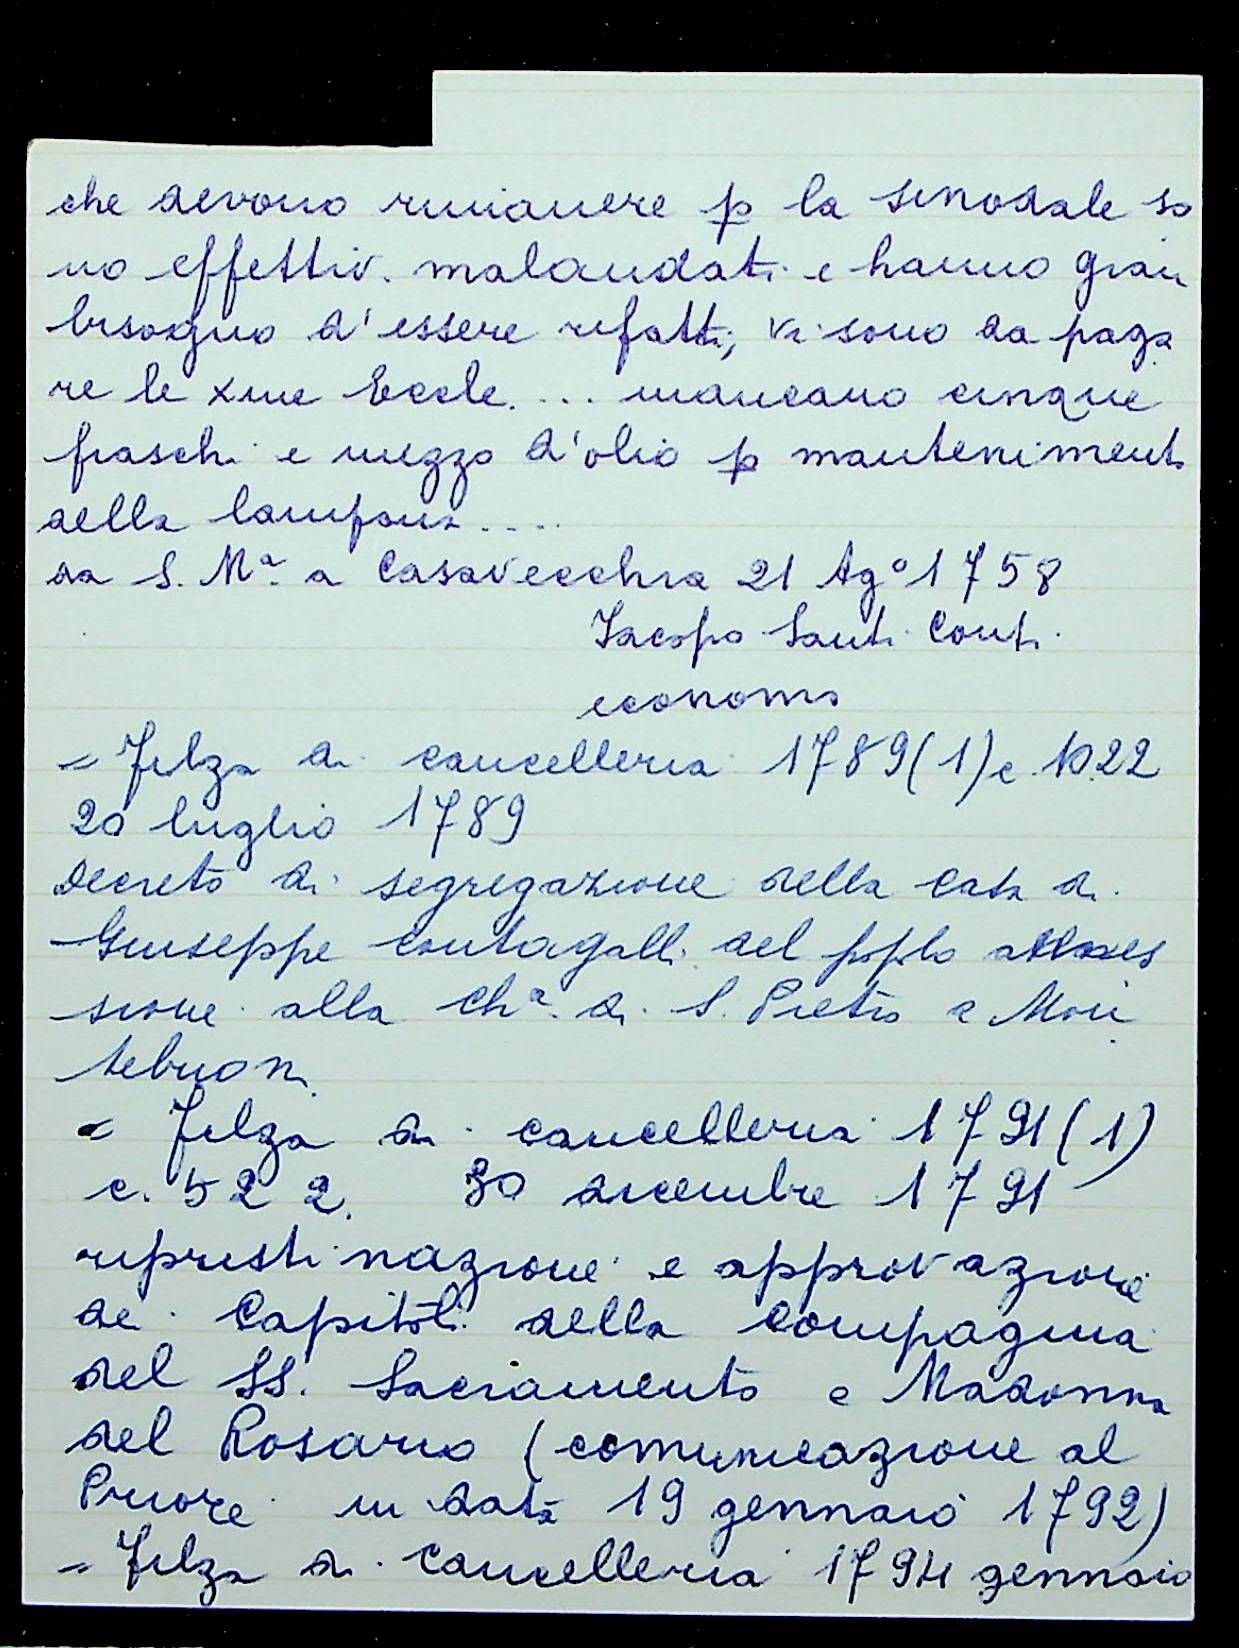 che devono rimanere p la sinodale so
no effettiv. malandati e hanno gran
bisogno d'essere rifatti, vi sono da paga
re le xme Eccle. ... mancano cinque
fiaschi e mezzo d'olio p mantenimento
della lampana ....
da S. Mª. a Casavecchia 21 Agº 1758
Jacopo Santi Conti
economo
= Filza di cancelleria 1789(1) c. 1022
20 luglio 1789
Decreto di segregazione della casa di
Giuseppe Contagalli del poplo annes
sione alla Chª. di S. Pietro a Mon
tebuoni
= Filza di cancelleria 1791(1)
c. 522. 30 dicembre 1791
ripristinazione e approvazione
dei Capitoli della Compagnia
del SS. Sacramento e Madonna
del Rosario (comunicazione al
Priore in data 19 gennaio 1792)
= Filza di Cancelleria 1794 gennaio